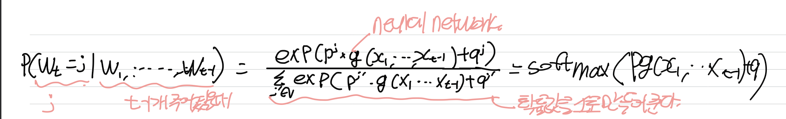 neural network
P(Wt=j | W1, ..., Wt-1) = exp(p^j · g(x1, ..., xt-1)+q^j) / Σj'∈V exp(p^j' · g(x1 ... xt-1)+q^j') = softmax(Pg(x1, ... xt-1)+q)
j t-1개 주어졌을때 확률값을 1로 만들어준다.